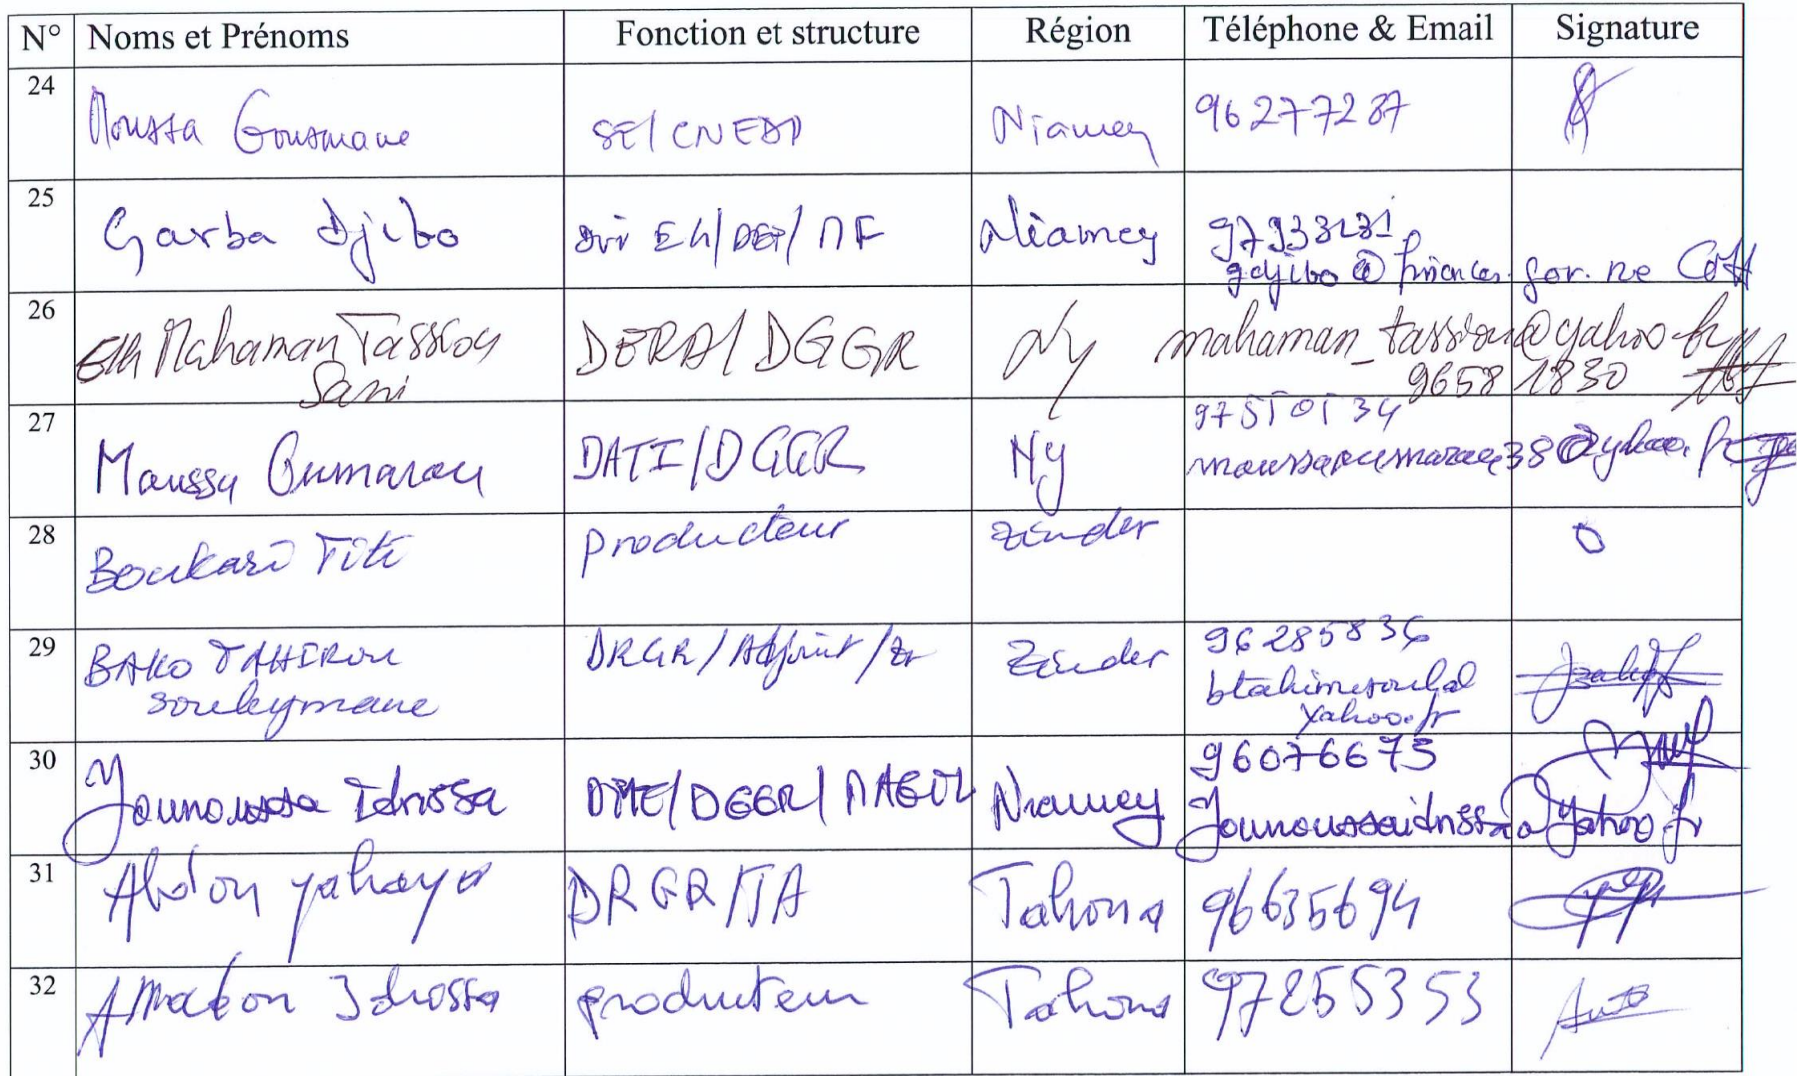 N° Noms et Prénoms Fonction et structure Région Téléphone & Email Signature
24 Moussa Gousmane SE/CNEDD Niamey 96277287
25 Garba Djibo Div EG/DEP/MF Niamey 97933131
gdjibo@finances.gov.ne
26 Elh Mahaman Tassiou DERA/DGGR Ny mahaman_tassiou@yahoo.fr
Sani 96581830
27 Moussa Oumarou DATI/DGGR Ny 97510134
moussaoumarou38@yahoo.fr
28 Boukari Titi producteur Zinder
29 BAKO TAHIROU DRGR/Adjoint/Zr Zinder 96285836
Souleymane
yahoo.fr
30 Younoussa Idrissa DME/DGGR/MAGEL Niamey 96076675
Younoussaidrissa@yahoo.fr
31 Abdou yahaya DRGR/TA Tahoua 96635694
32 Amadou Idrissa producteur Tahoua 97255353